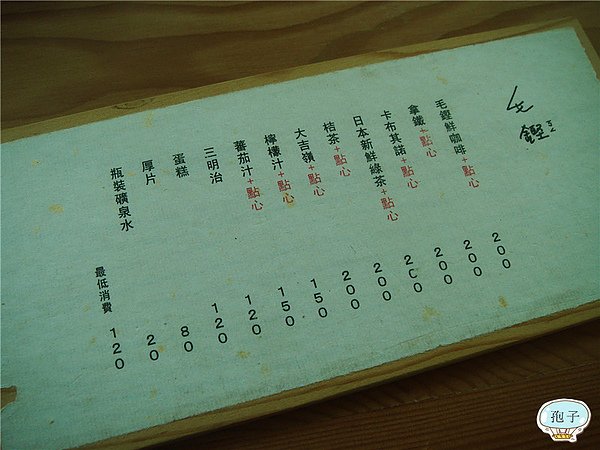 毛
鏗
毛鏗鮮咖啡+點心 200
拿鐵+點心 200
卡布其諾+點心 200
日本新鮮綠茶+點心 200
桔茶+點心 200
大吉嶺+點心 200
檸檬汁+點心 150
蕃茄汁+點心 150
三明治 120
蛋糕 120
厚片 80
瓶裝礦泉水 20
最低消費 120
孢子